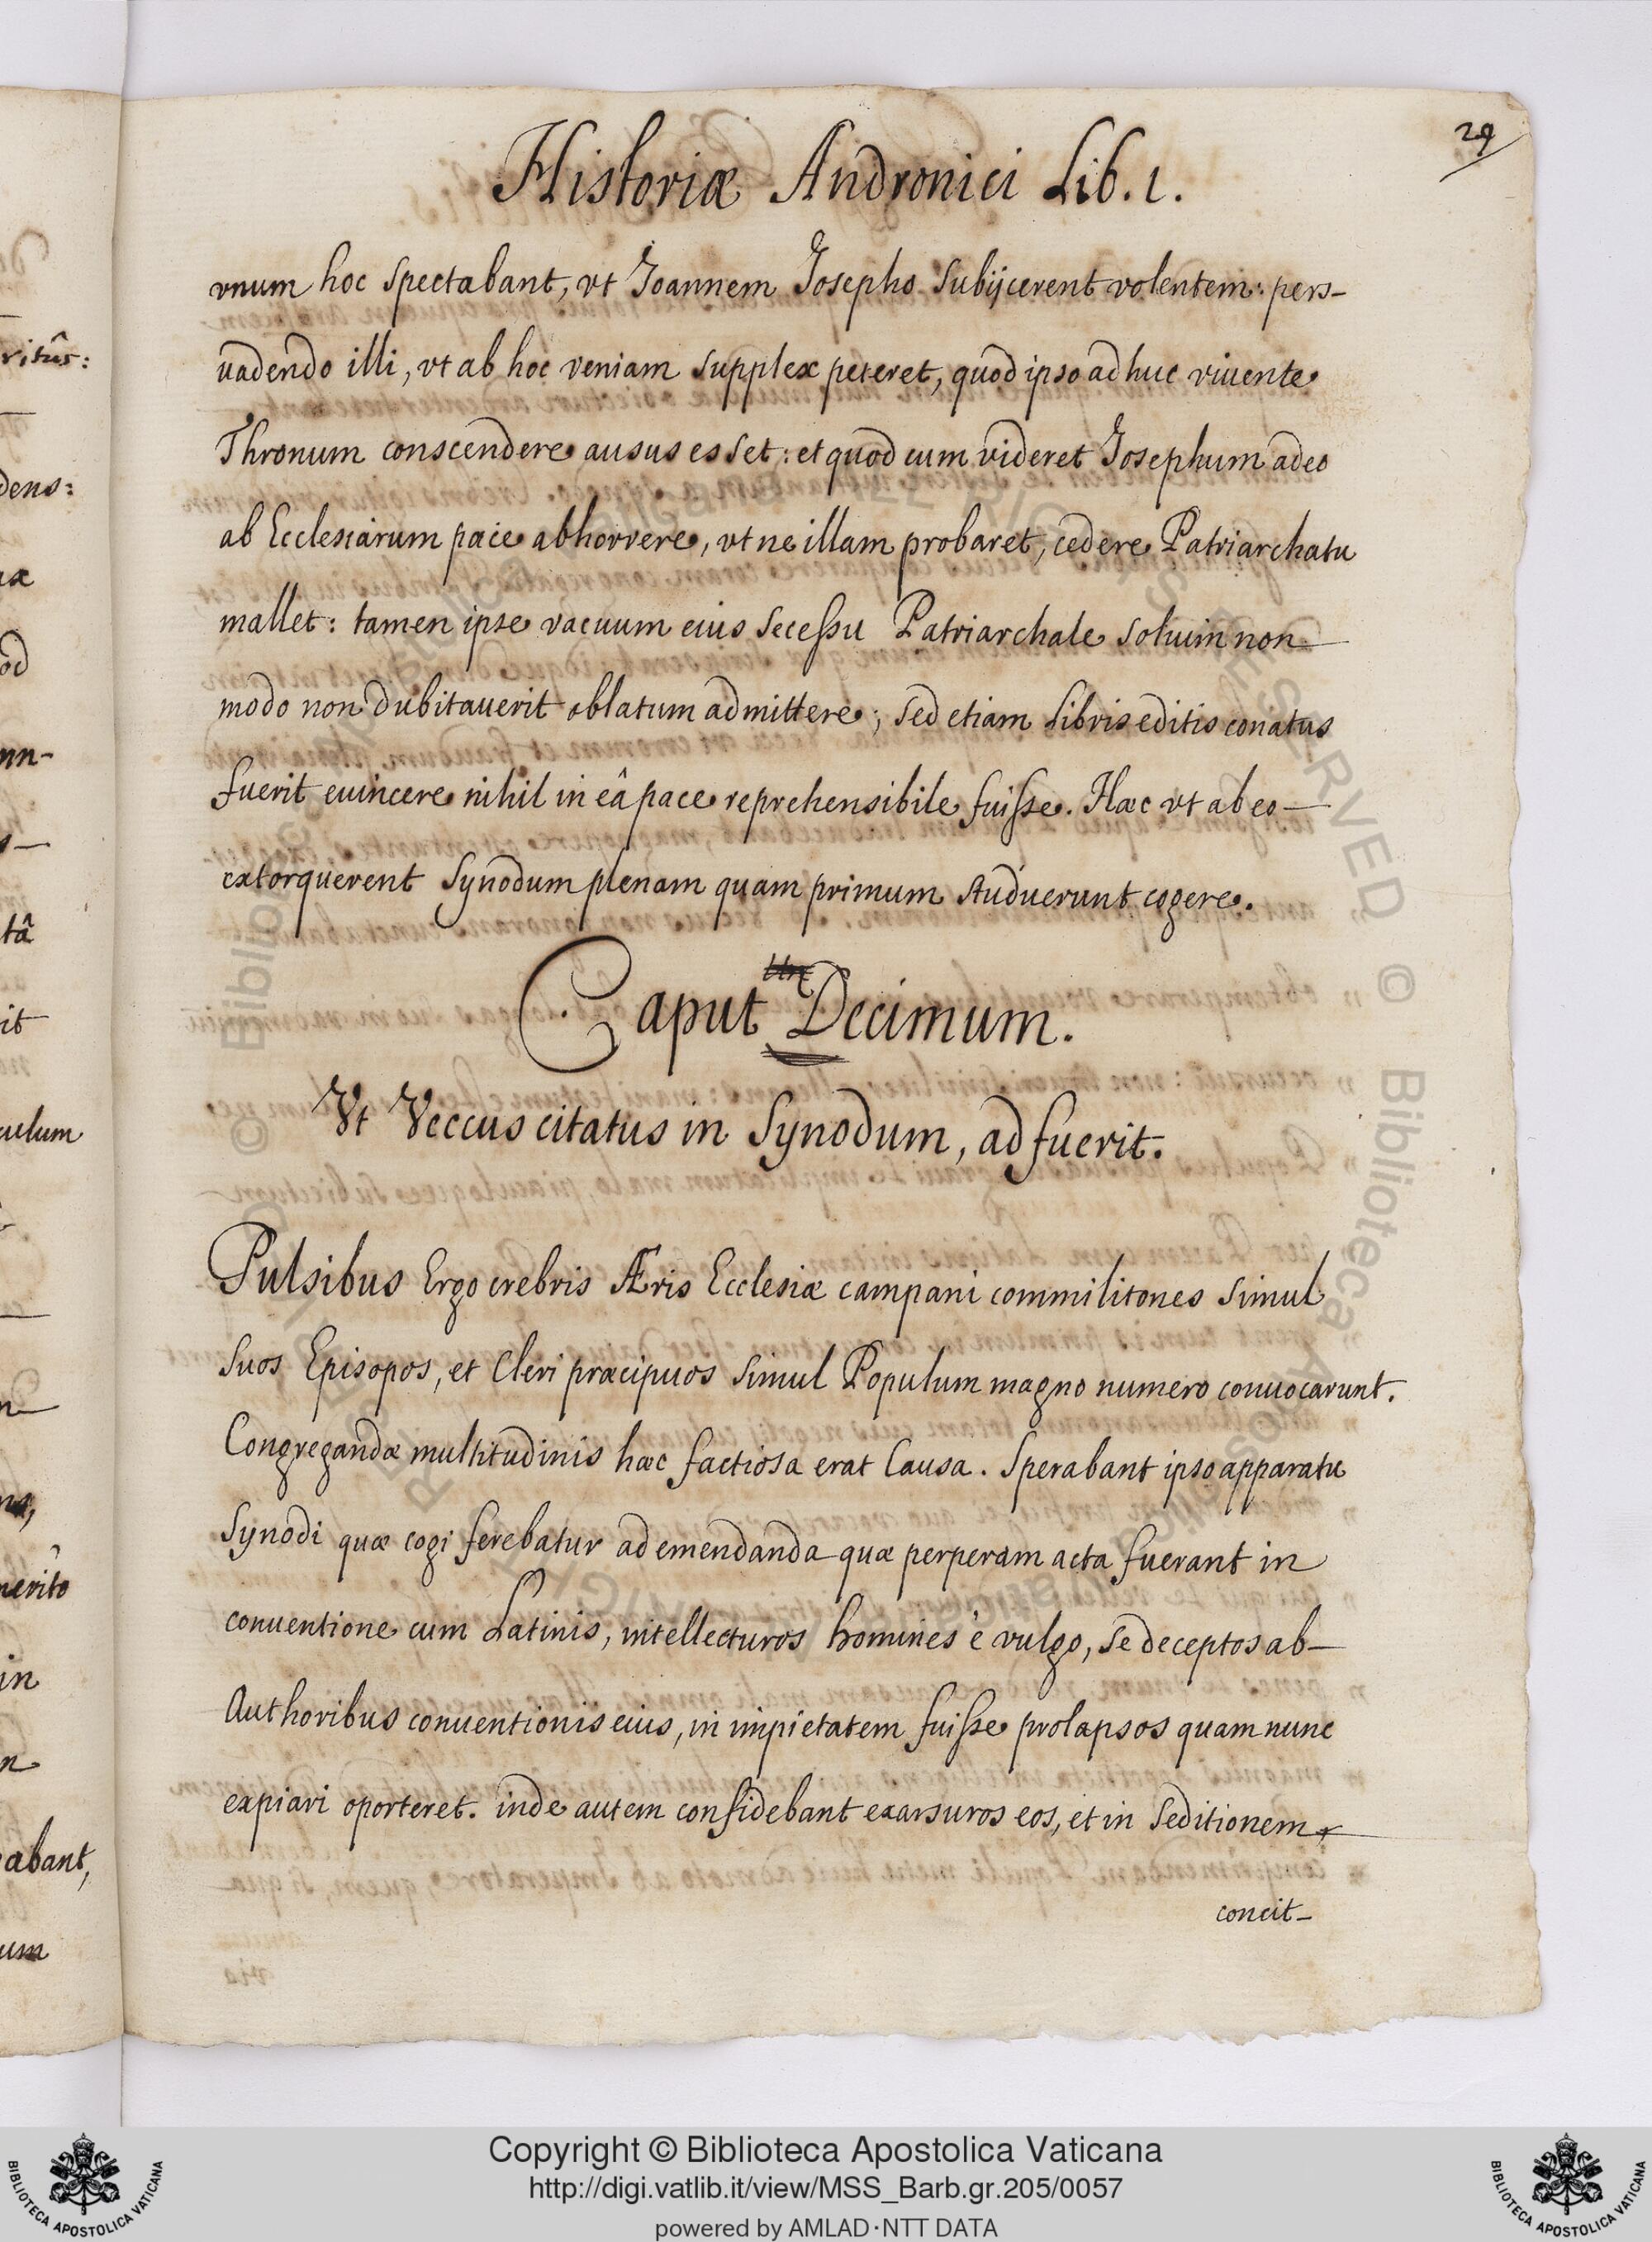 29
Historiæ Andronici Lib. 1.
vnum hoc spectabant, vt Joannem Josepho subijcerent volentem: pers-
uadendo illi, vt ab hoc veniam supplex peteret, quod ipso adhuc viuente
Thronum conscendere ausus esset: et quod cum videret Josephum adeo
ab Ecclesiarum pace abhorrere, vt ne illam probaret, cedere Patriarchatu
mallet: tamen ipse vacuum eius secessu Patriarchale solium non
modo non dubitauerit oblatum admittere; sed etiam libris editis conatus
fuerit euincere nihil in eâ pace reprehensibile fuisse. Hæc vt ab eo
extorquerent synodum plenam quam primum studuerunt cogere.
Caput Decimum.
Vt Veccus citatus in synodum, adfuerit.
Pulsibus Ergo crebris Æris Ecclesiæ campani commilitones simul
suos Episopos, et Cleri præcipuos simul Populum magno numero conuocarunt.
Congregandæ multitudinis hæc factiosa erat Causa. Sperabant ipso apparatu
synodi quæ cogi ferebatur ad emendanda quæ perperam acta fuerant in
conuentione cum Latinis, intellecturos homines è vulgo, se deceptos ab
Authoribus conuentionis eius, in impietatem fuisse prolapsos quam nunc
expiari oporteret. inde autem confidebant exarsuros eos, et in seditionem
concit-
ritûs:
dens:
uæ
od
nn-
s-
tâ
it
culum
meritò
in
n
abant,
um
© Biblioteca Apostolica Vaticana
ALL RIGHTS RESERVED
Copyright © Biblioteca Apostolica Vaticana
http://digi.vatlib.it/view/MSS_Barb.gr.205/0057
powered by AMLAD·NTT DATA
BIBLIOTECA APOSTOLICA VATICANA
BIBLIOTECA APOSTOLICA VATICANA